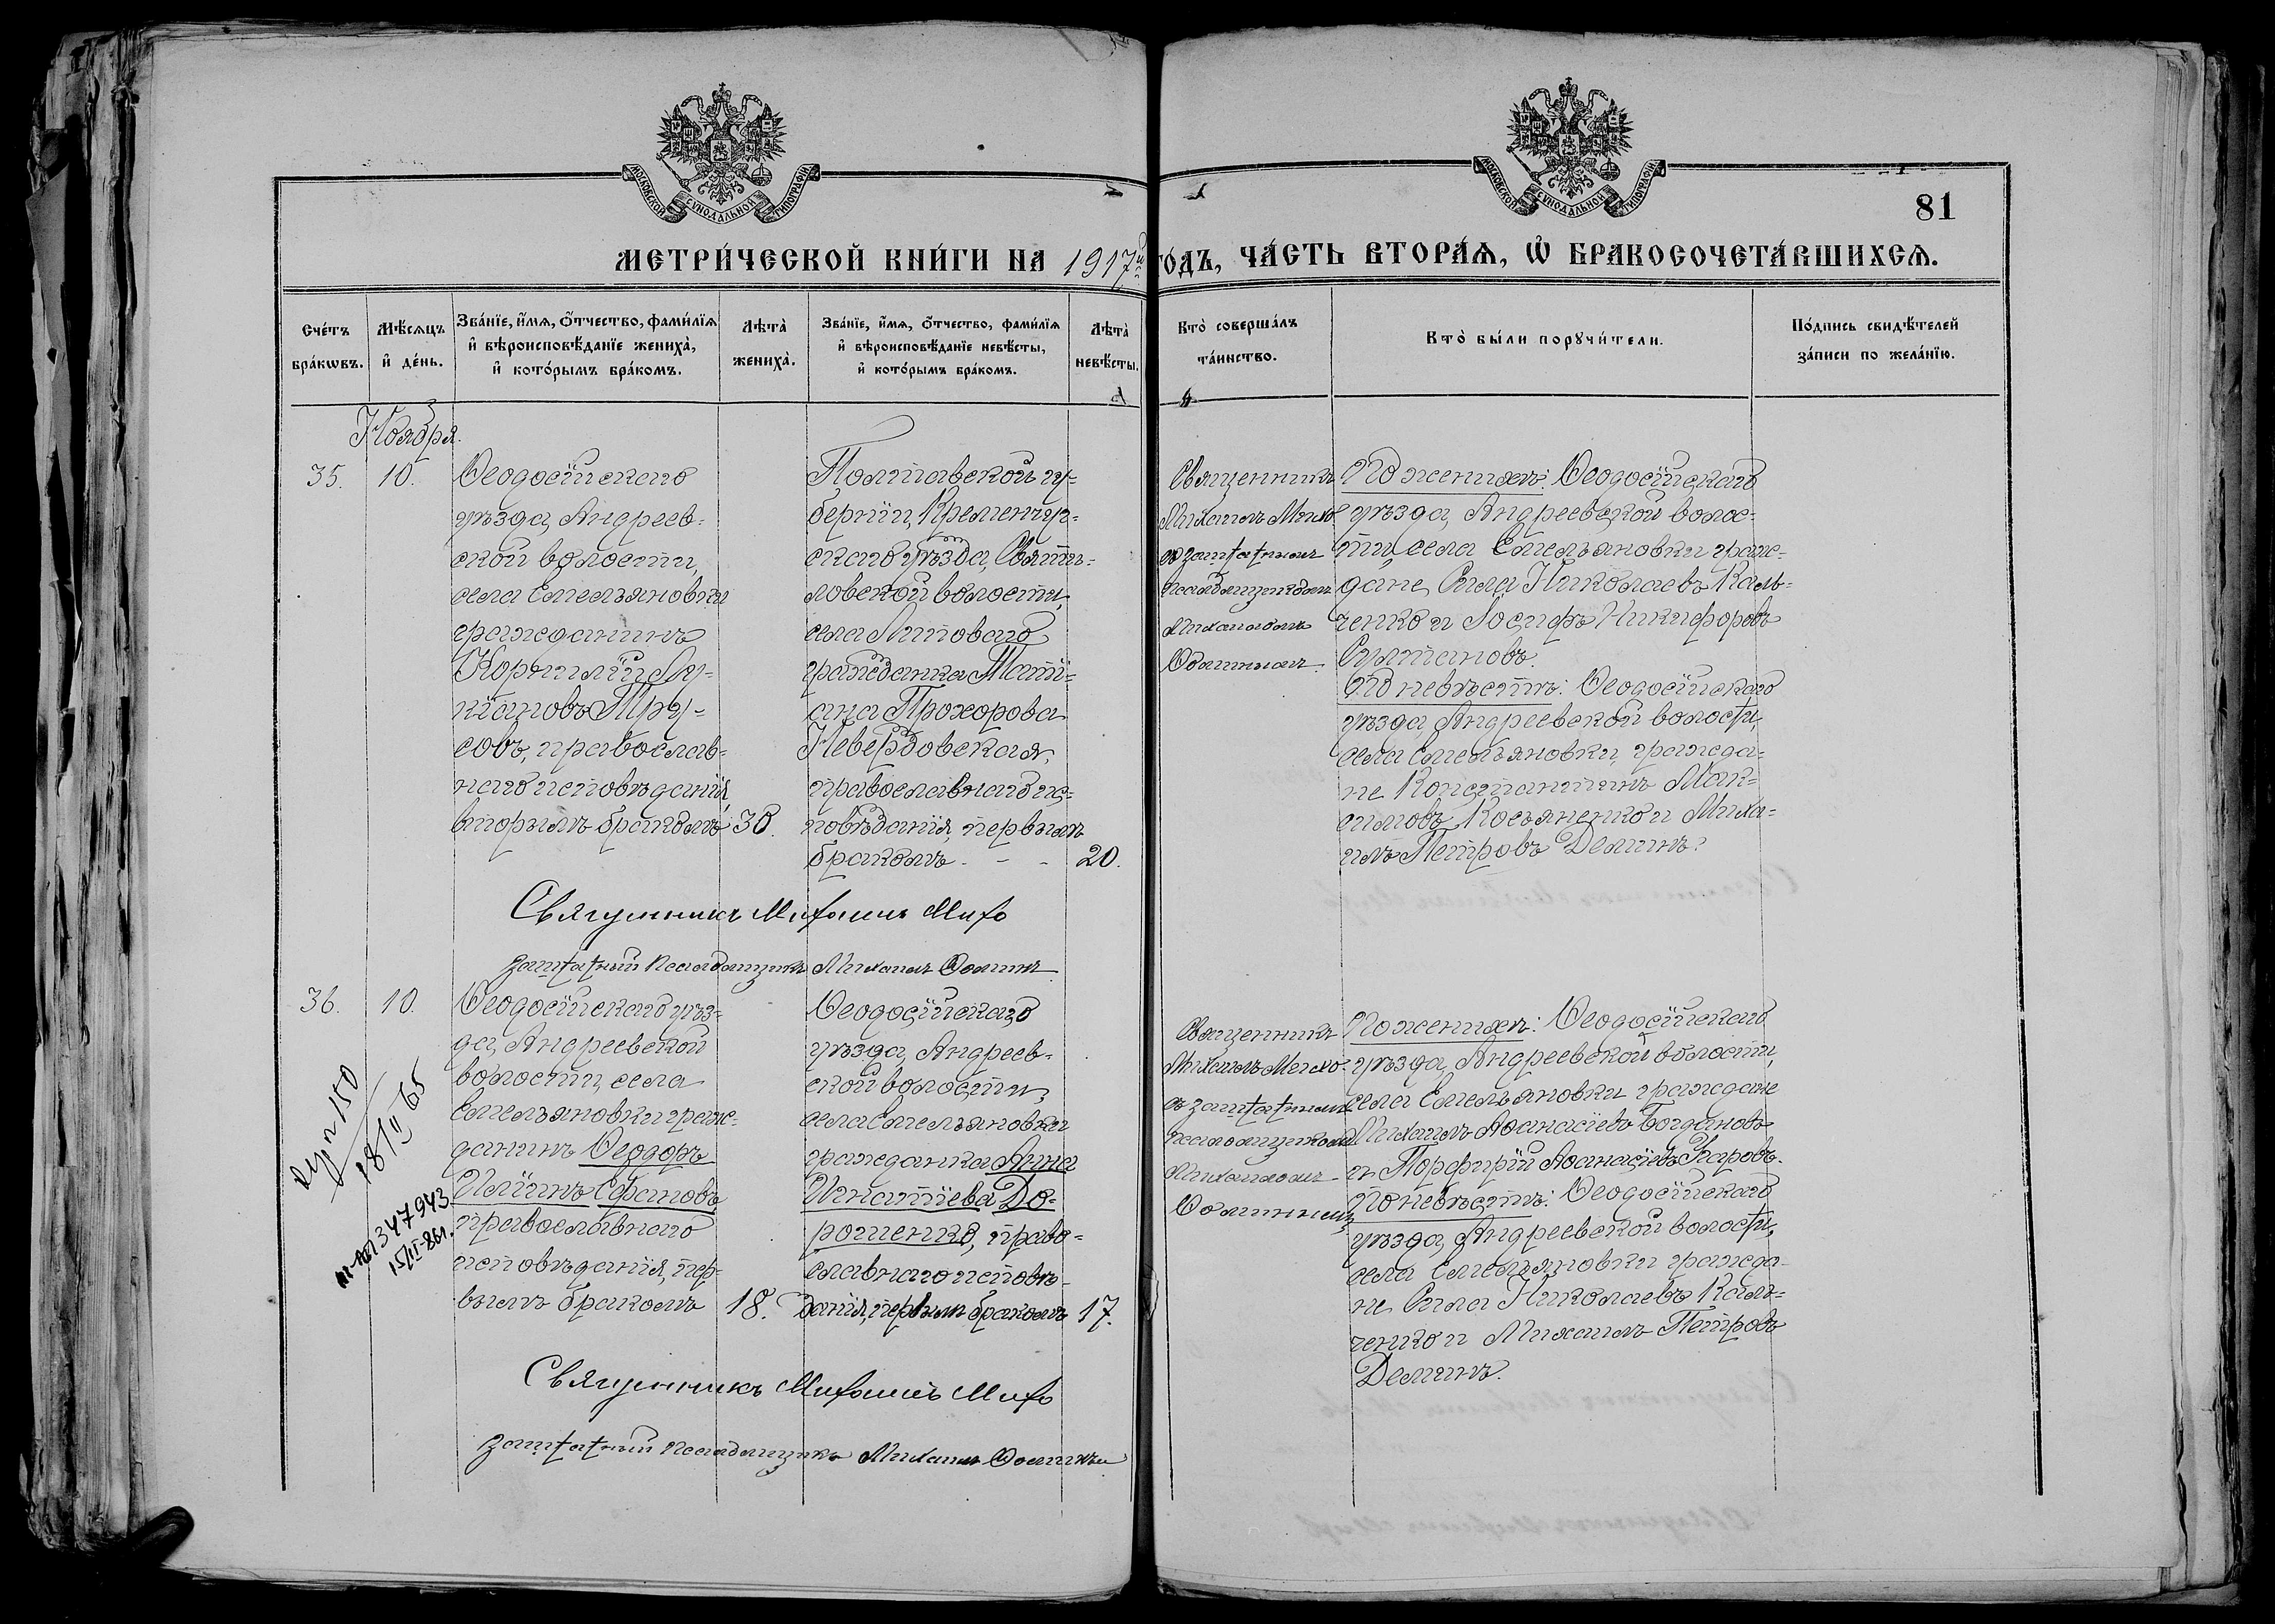 МОСКОВСКОЙ СѴНОДАЛЬНОЙ ТИПОГРАФІИ
МОСКОВСКОЙ СѴНОДАЛЬНОЙ ТИПОГРАФІИ
81
МЕТРИ́ЧЕСКОЙ КНИ́ГИ НА 1917й ГО́ДЪ, ЧА́СТЬ ВТОРА́Ѧ, Ѡ҆ БРАКОСОЧЕТА́ВШИХСѦ.
Сче́тъ бра́кѡвъ.
Мѣ́сѧцъ и҆ де́нь.
Зва́нїе, и҆́мѧ, ѻ҆́тчество, фами́лїѧ
и҆ вѣроисповѣ́данїе жениха̀,
и҆ кото́рымъ бра́комъ.
Лѣта̀ жениха̀.
Зва́нїе, и҆́мѧ, ѻ҆́тчество, фами́лїѧ
и҆ вѣроисповѣ́данїе невѣ́сты,
и҆ кото́рымъ бра́комъ.
Лѣта̀ невѣ́сты.
Кто̀ соверша́лъ
та́инство.
Кто̀ бы́ли порꙋчи́тели.
По́дпись свидѣ́телей
за́писи по жела́нїю.
Ноября.
35.
10.
Ѳеодосійскаго
уѣзда, Андреев-
ской волости,
села Емельяновки
гражданинъ
Корнилій Лу-
кіановъ Тру-
совъ, православ-
наго исповѣданія,
вторымъ бракомъ
30.
Полтавской гу-
берніи, Кременчуг-
скаго уѣзда,
ловской волости,
села Липоваго
гражданка Тати-
ана Прохорова
православнаго ис-
повѣданія, первымъ
бракомъ - - -
20.
Священникъ
Михаилъ Михо
съ заштатнымъ
псаломщикомъ
Михаиломъ
Ѳоминымъ.
По женихѣ: Ѳеодосійскаго
уѣзда, Андреевской волос-
ти, села Емельяновки граж-
дане, Сила Николаевъ Каль-
ченко и Іосифъ Никифоровъ
Султановъ.
По невѣстѣ: Ѳеодосійскаго
уѣзда, Андреевской волости,
села Емельяновки, гражда-
не Константинъ Мак-
симовъ Косьяненко и Миха-
илъ Петровъ Деминъ.
Священникъ Михаилъ Михо
Заштатный псаломщикъ Михаилъ Ѳоминъ
36.
10.
Ѳеодосійскаго уѣз-
да, Андреевской
волости, села
Емельяновки граж-
данинъ Ѳеодоръ
православнаго
исповѣданія, пер-
вымъ бракомъ
18.
Ѳеодосійскаго
уѣзда, Андреев-
ской волости,
села Емельяновки
гражданка Анна
Игнатіева До-
рошенко, право-
славнаго исповѣ-
данія, первымъ бракомъ
17.
Священникъ
Михаилъ Михо
съ заштатнымъ
псаломщикомъ
Михаиломъ
Ѳоминымъ
По женихѣ: Ѳеодосійскаго
уѣзда, Андреевской волости,
села Емельяновки граждане
Михаилъ Аѳанасіевъ Богдановъ
и Порфирій Аѳанасіевъ
По невѣстѣ: Ѳеодосійскаго
уѣзда, Андреевской волости,
села Емельяновки гражда-
не Сила Николаевъ Каль-
ченко и Михаилъ Петровъ
Деминъ.
150
18/II 65
347943
15/II-86г.
Священникъ Михаилъ Михо
Заштатный псаломщикъ Михаилъ Ѳоминъ